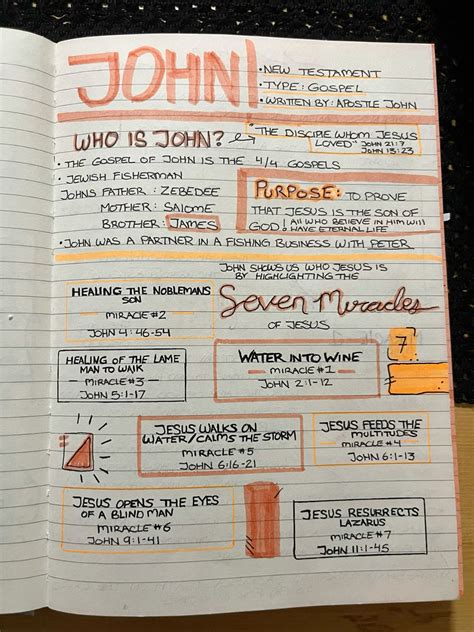 JOHN
• NEW TESTAMENT
• TYPE: GOSPEL
• WRITTEN BY: APOSTLE JOHN
WHO IS JOHN?
"THE DISCIPLE WHOM JESUS
LOVED" JOHN 21:7
JOHN 13:23
• THE GOSPEL OF JOHN IS THE 4/4 GOSPELS
• JEWISH FISHERMAN
JOHNS FATHER: ZEBEDEE
MOTHER: SALOME
BROTHER: JAMES
PURPOSE: TO PROVE
THAT JESUS IS THE SON OF
GOD! ALL WHO BELIEVE IN HIM WILL
HAVE ETERNAL LIFE
• JOHN WAS A PARTNER IN A FISHING BUSINESS WITH PETER
JOHN SHOWS US WHO JESUS IS
BY HIGHLIGHTING THE
Seven Miracles
OF JESUS
HEALING THE NOBLEMANS
SON
MIRACLE #2
JOHN 4:46-54
7
HEALING OF THE LAME
MAN TO WALK
MIRACLE #3
JOHN 5:1-17
WATER INTO WINE
MIRACLE #1
JOHN 2:1-12
JESUS WALKS ON
WATER/CALMS THE STORM
MIRACLE #5
JOHN 6:16-21
JESUS FEEDS THE
MULTITUDES
MIRACLE #4
JOHN 6:1-13
JESUS OPENS THE EYES
OF A BLIND MAN
MIRACLE #6
JOHN 9:1-41
JESUS RESURRECTS
LAZARUS
MIRACLE #7
JOHN 11:1-45